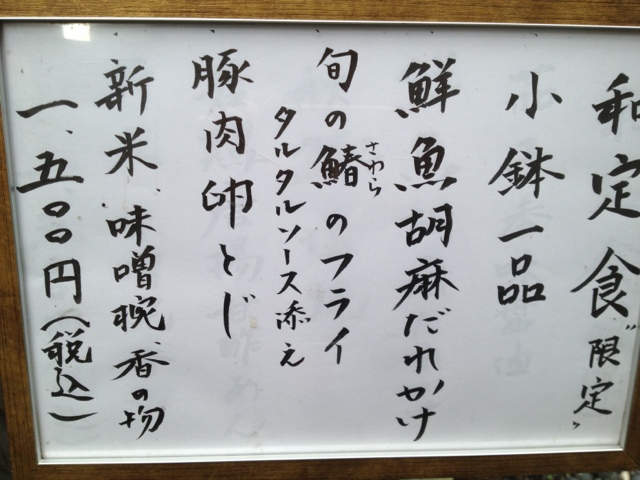 和定食〝限定〟
小鉢一品
鮮魚胡麻だれかけ
旬の鰆のフライ
さわら
タルタルソース添え
豚肉卵とじ
新米、味噌椀、香の物
一、五〇〇円（税込）